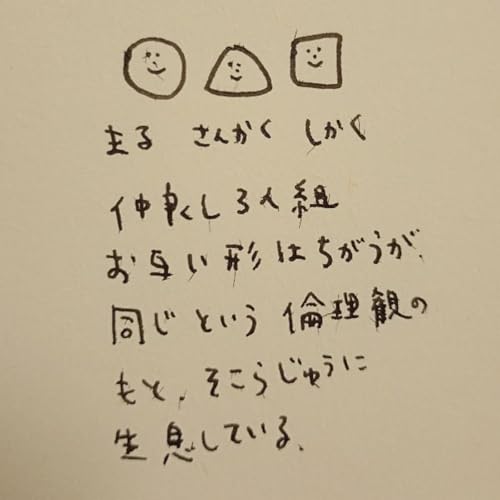 まる さんかく しかく
仲良し3人組
お互い形はちがうが、
同じという倫理観の
もと、そこらじゅうに
生息している。